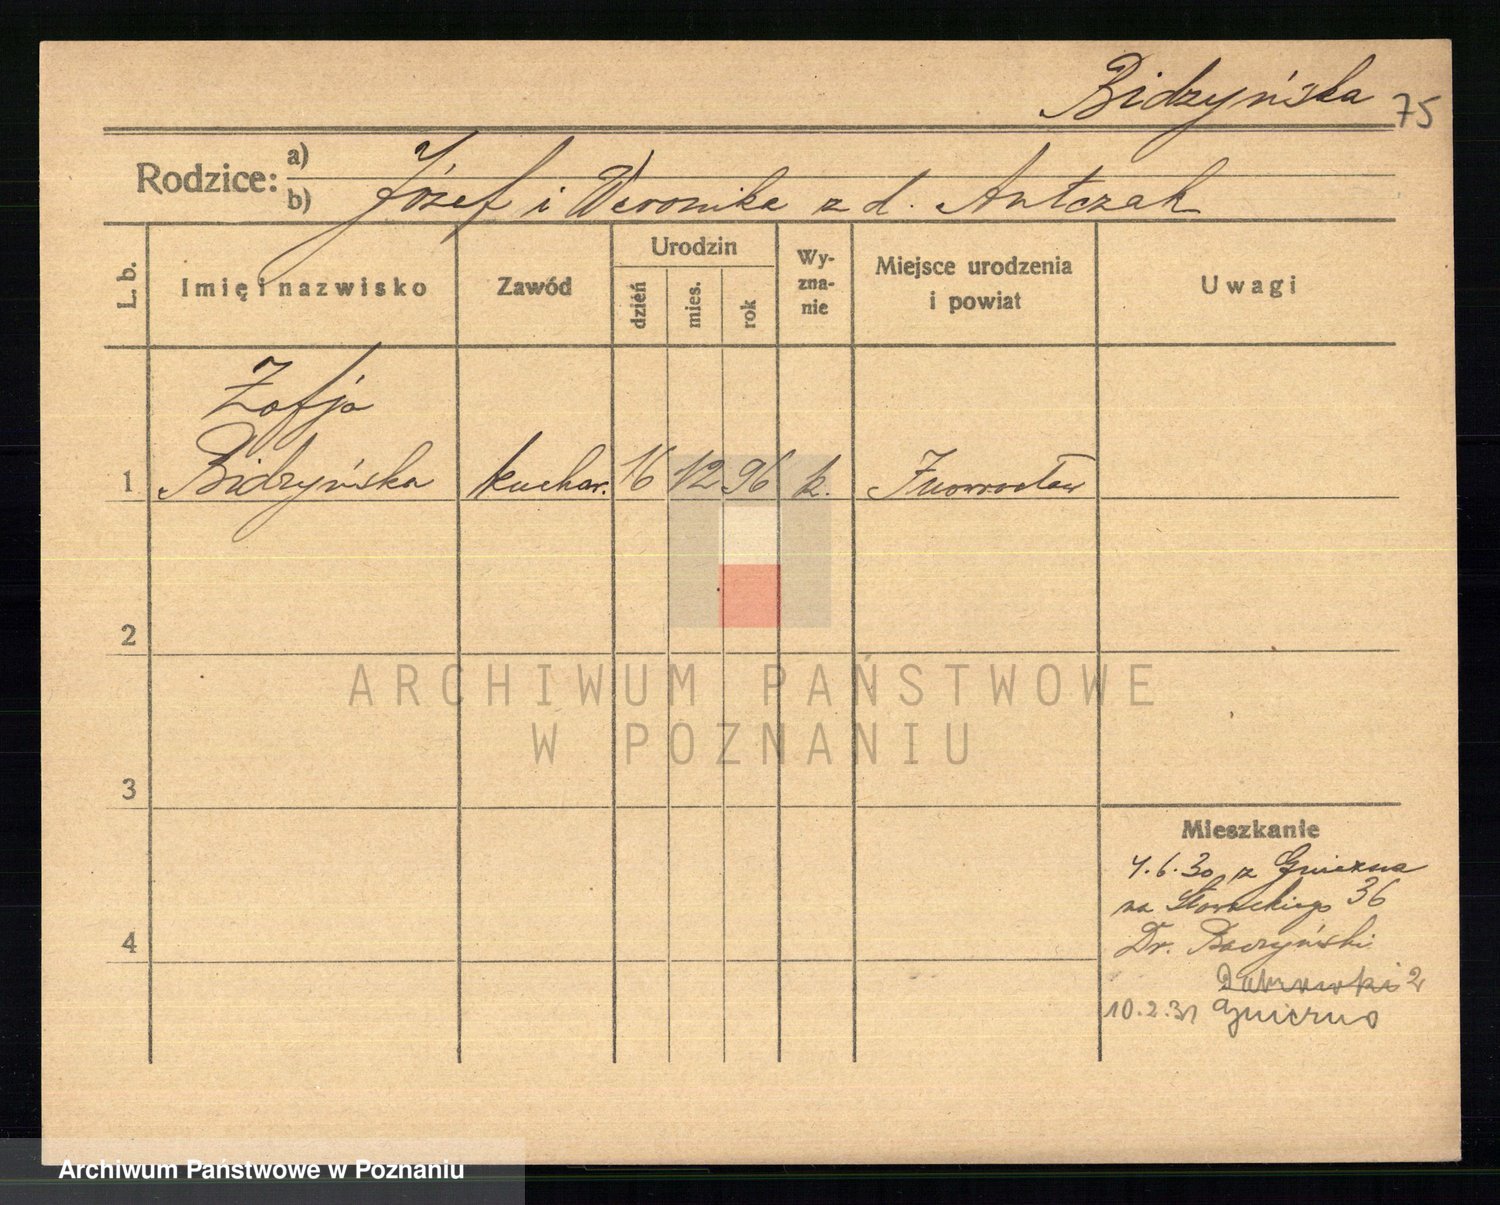 Bidzyńska 75
Rodzice: a)
b) Józef i Weronika z d. Antczak
L. b. Imię i nazwisko Zawód Urodzin dzień mies. rok Wyznanie Miejsce urodzenia i powiat Uwagi
Zofja
1 Bidzyńska kuchar. 16 12 96 k. Inowrocław
2
3
4
Mieszkanie
4.6.30 z Gniezna
na Słowackiego 36
Dr. Baczyński
2
10.2.31 Gniezno
ARCHIWUM PAŃSTWOWE
W POZNANIU
Archiwum Państwowe w Poznaniu